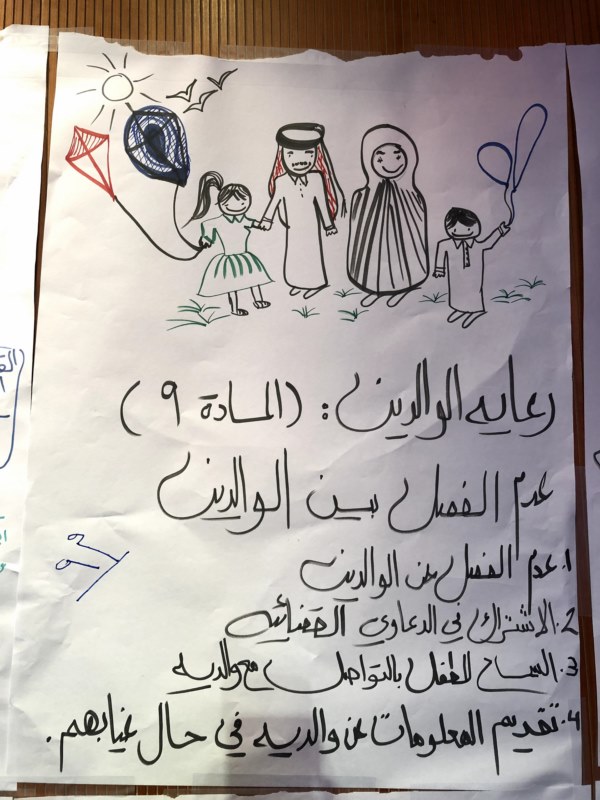 رعايه الوالدين: (المادة ٩)
عدم الفصل بين الوالدين
1. عدم الفصل عن الوالدين
2. الاشتراك في الدعاوي القضائيه
3. السماح للطفل بالتواصل مع والديه
4. تقديم المعلومات عن والديه في حال غيابهم.